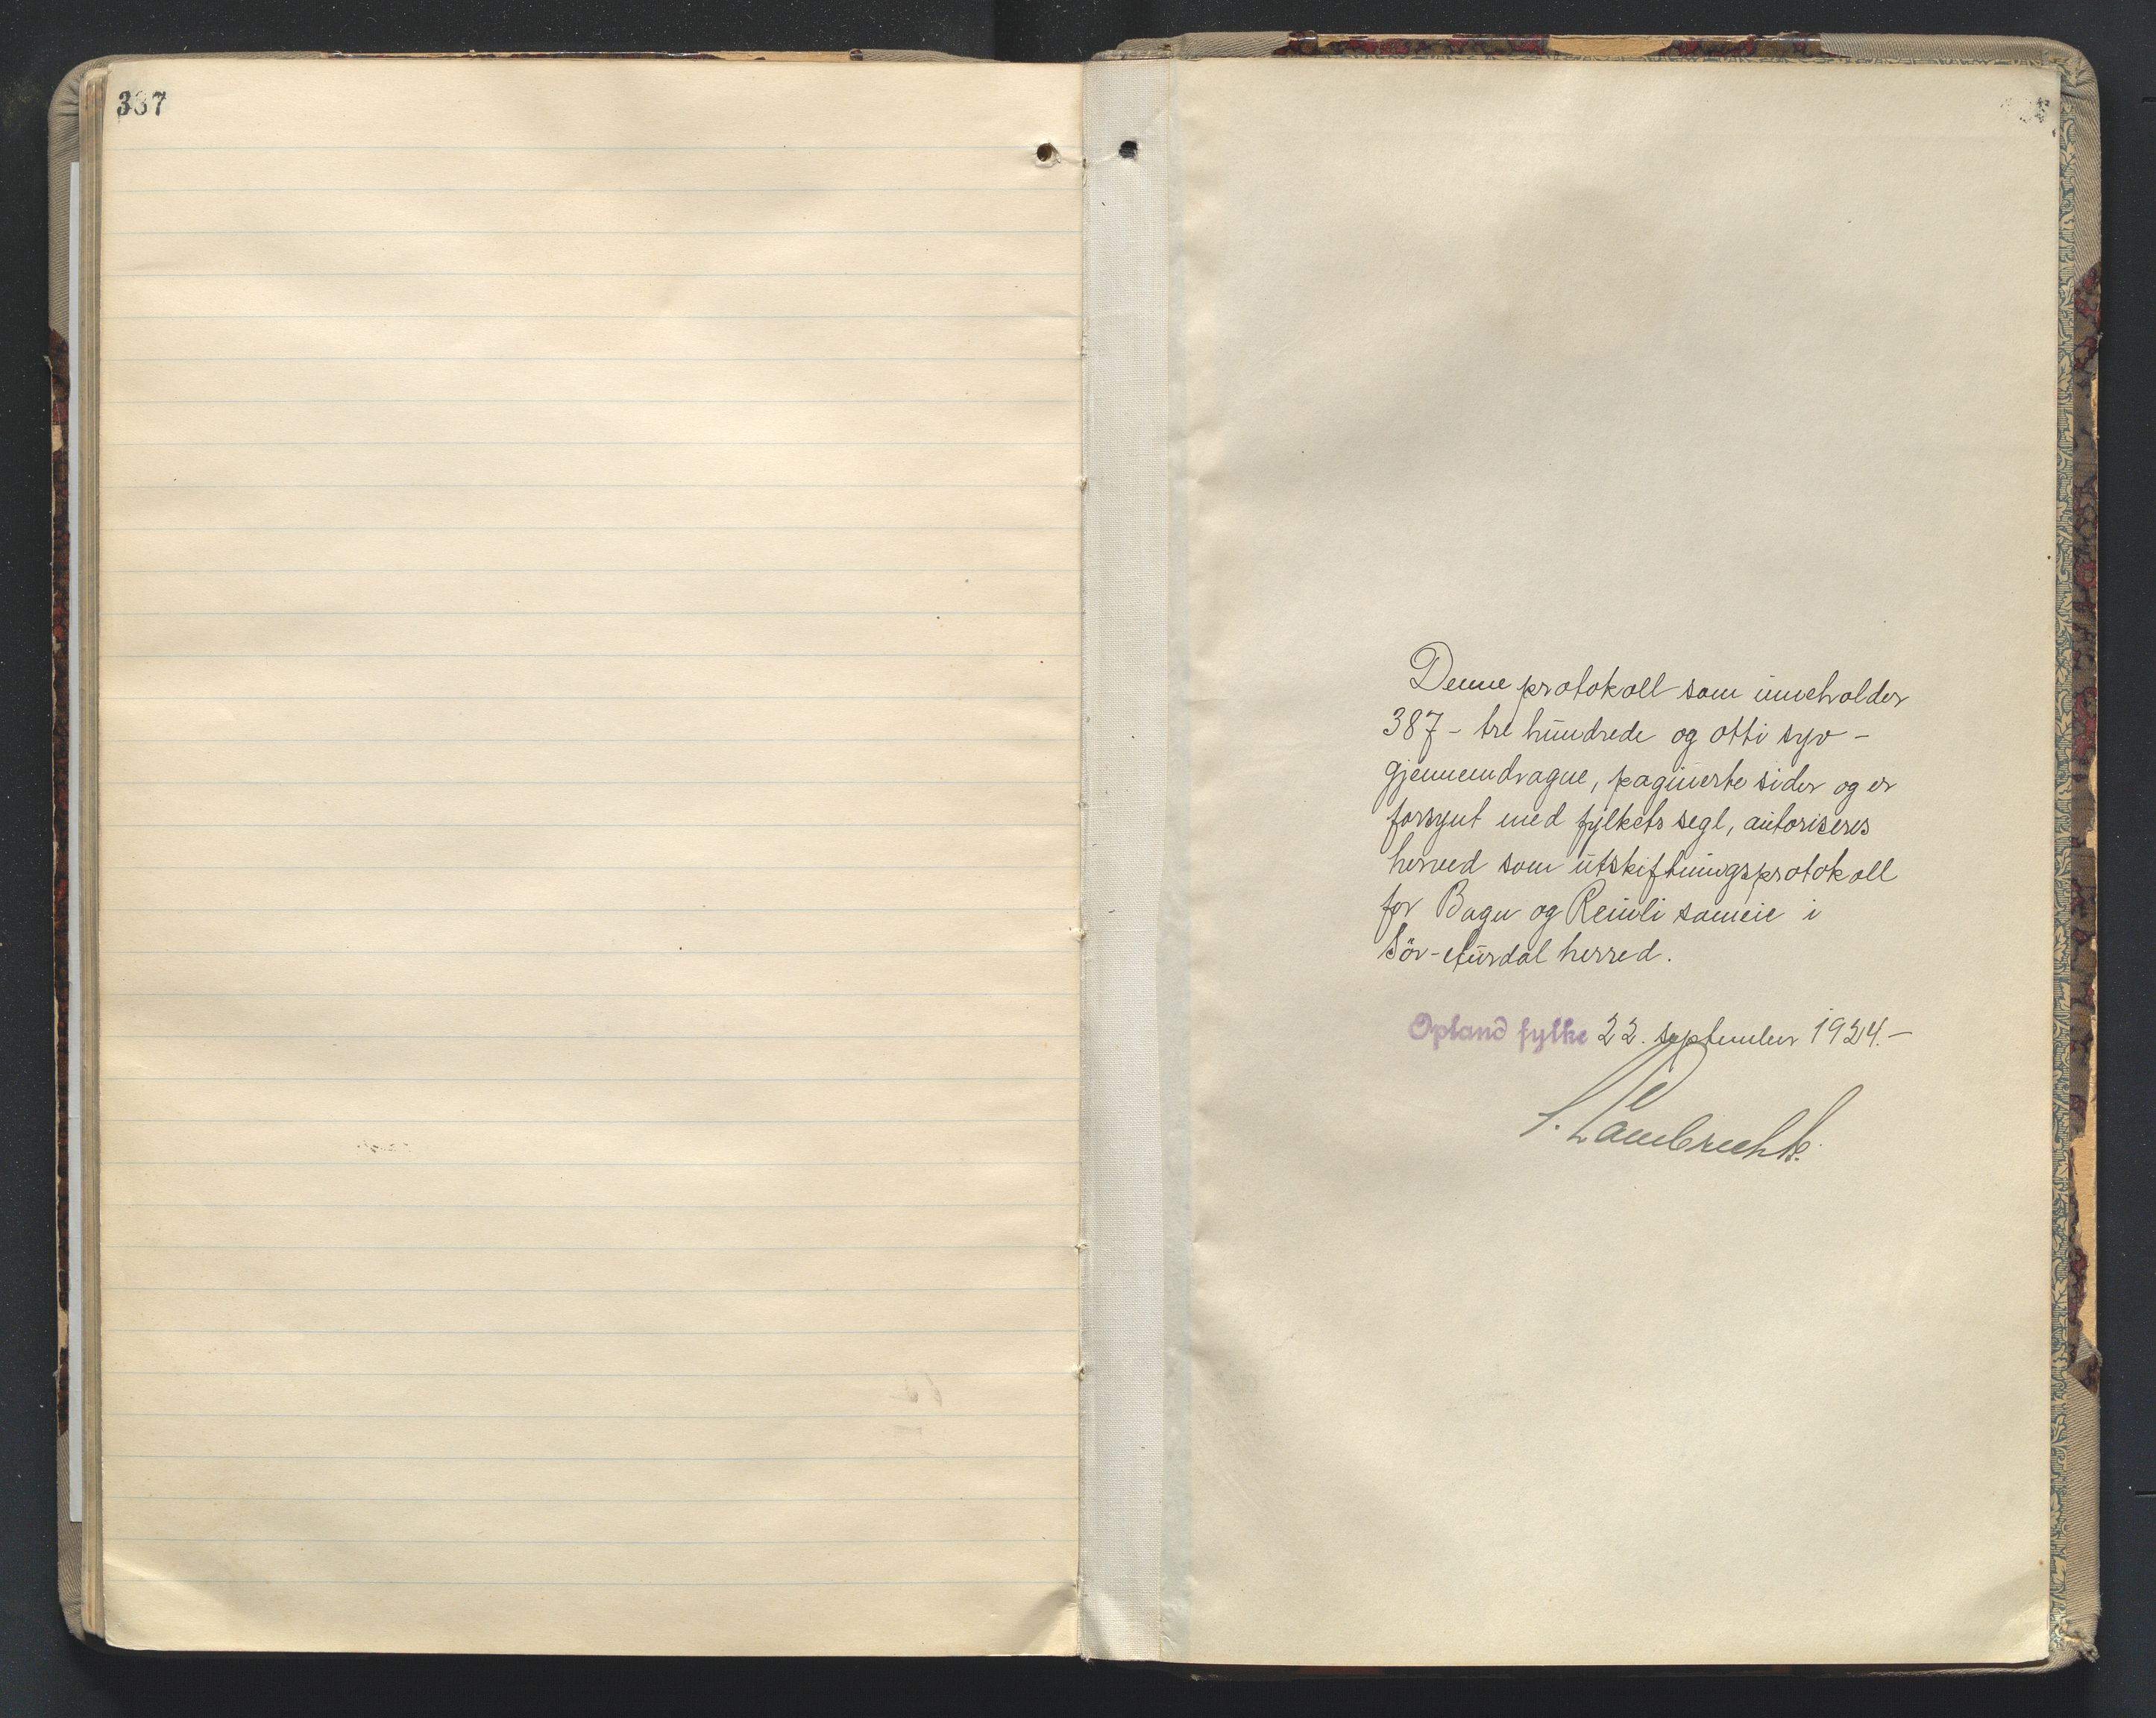 387
Denne protokoll som inneholder
387 - tre hundrede og otti syv -
gjennemdragne, paginerte sider og er
forsynt med fylkets segl, autoriseres
herved som utskiftningsprotokoll
for Bagn og Reinli sameie i
Sör-Aurdal herred.
Opland fylke 22. september 1924.-
S. Lambrechts.